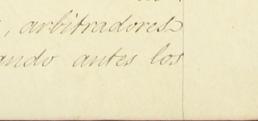 , arbitradores
ando antes los